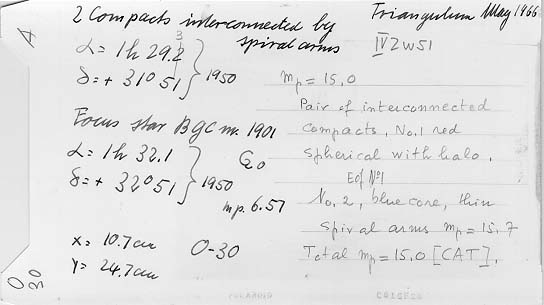 2 Compacts interconnected by
spiral arms
Triangulum May 1966
A
α = 1h 29.2
3
δ = + 31° 51
} 1950
IV Zw 51
mp = 15,0
Pair of interconnected
compacts, No.1 red
spherical with halo.
E of No 1
No, 2, blue core, thin
spiral arms mp = 15,7
Total mp = 15,0 [CAT].
Focus star BGC nr. 1901
α = 1h 32.1
δ = + 32° 51
} 1950
G20
mp. 6.57
x = 10.7 cm
y = 24.7 cm
O-30
O
30
POLAROID